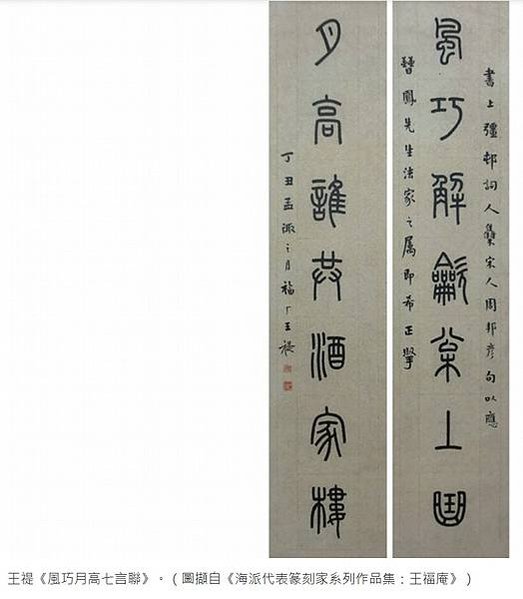 書上彊邨詞人集宋人周邦彥句以應
風巧解龡枀上曲
鳳先生法家之属即希正
月高誰共酒家樓
丁丑孟陬之月福厂王禔
王禔《風巧月高七言聯》。（圖擷自《海派代表篆刻家系列作品集：王福庵》）